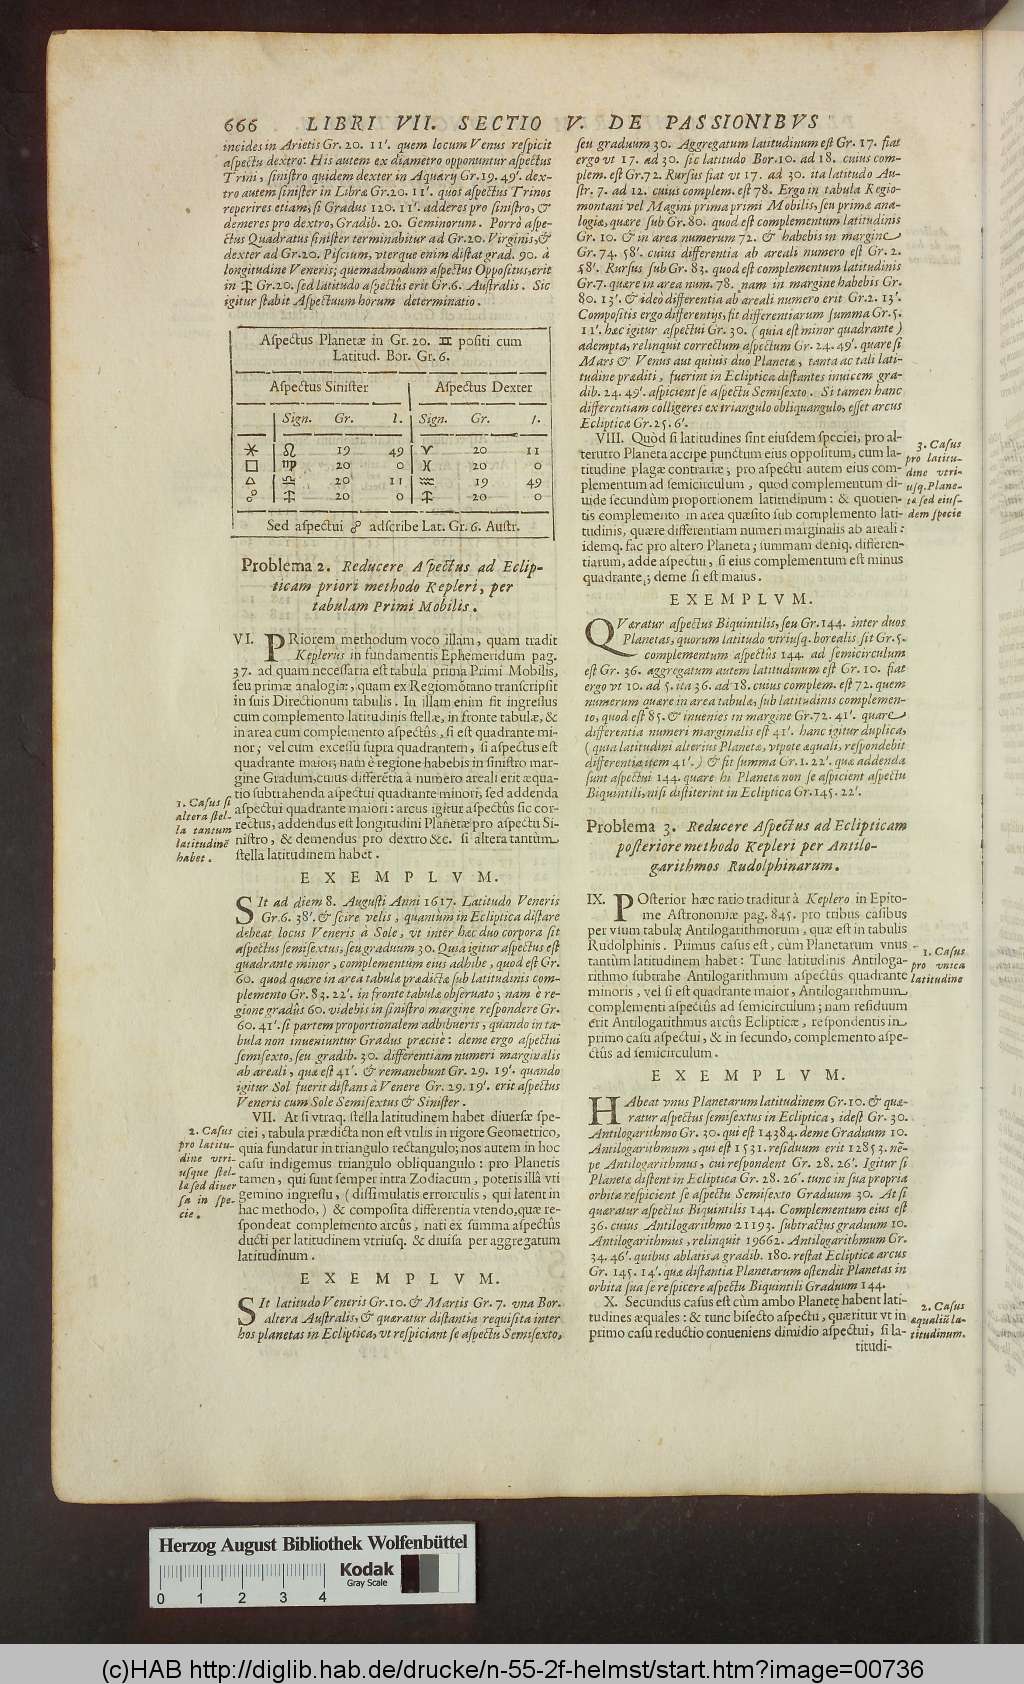 666 LIBRI VII. SECTIO V. DE PASSIONIBVS
incides in Arietis Gr. 20. 11'. quem locum Venus respicit
aspectu dextro: His autem ex diametro opponuntur aspectus
Trini, sinistro quidem dexter in Aquary Gr. 19. 49'. dex-
tro autem sinister in Libræ Gr. 20. 11'. quos aspectus Trinos
reperires etiam, si Gradus 120. 11'. adderes pro sinistro, &
demeres pro dextro, Gradib. 20. Geminorum. Porrò aspe-
ctus Quadratus sinister terminabitur ad Gr. 20. Virginis, &
dexter ad Gr. 20. Piscium, vterque enim distat grad. 90. à
longitudine Veneris; quemadmodum aspectus Oppositus, erit
in ♐ Gr. 20. sed latitudo aspectûs erit Gr. 6. Australis. Sic
igitur stabit Aspectuum horum determinatio.
Aspectus Planetæ in Gr. 20. ♊ positi cum
Latitud. Bor. Gr. 6.
Aspectus Sinister | Aspectus Dexter
Sign. Gr. I. | Sign. Gr. I.
⚹ ♌ 19 49 | ♈ 20 11
□ ♍ 20 0 | ♓ 20 0
△ ♎ 20 11 | ♒ 19 49
☍ ♐ 20 0 | ♐ 20 0
Sed aspectui ☍ adscribe Lat. Gr. 6. Austr.
Problema 2. Reducere Aspectus ad Eclip-
ticam priori methodo Kepleri, per
tabulam Primi Mobilis.
VI. PRiorem methodum voco illam, quam tradit
Keplerus in fundamentis Ephemeridum pag.
37. ad quam necessaria est tabula prima Primi Mobilis,
seu primæ analogiæ, quam ex Regiomōtano transcripsit
in suis Directionum tabulis. In illam enim fit ingressus
cum complemento latitudinis stellæ, in fronte tabulæ, &
in area cum complemento aspectûs, si est quadrante mi-
nor; vel cum excessu supra quadrantem, si aspectus est
quadrante maior; nam è regione habebis in sinistro mar-
gine Gradum, cuius differētia à numero areali erit æqua-
tio subtrahenda aspectui quadrante minori, sed addenda
aspectui quadrante maiori: arcus igitur aspectûs sic cor-
rectus, addendus est longitudini Planetæ pro aspectu Si-
nistro, & demendus pro dextro &c. si altera tantùm
stella latitudinem habet.
1. Casus si
altera stel-
la tantum
latitudinē
habet.
EXEMPLVM.
SIt ad diem 8. Augusti Anni 1617. Latitudo Veneris
Gr. 6. 38'. & scire velis, quantùm in Ecliptica distare
debeat locus Veneris à Sole, vt inter hæc duo corpora sit
aspectus semisextus, seu graduum 30. Quia igitur aspectus est
quadrante minor, complementum eius adhibe, quod est Gr.
60. quod quære in area tabulæ prædictæ sub latitudinis com-
plemento Gr. 83. 22'. in fronte tabulæ obseruato; nam è re-
gione gradûs 60. videbis in sinistro margine respondere Gr.
60. 41'. si partem proportionalem adhibueris, quando in ta-
bula non inueniuntur Gradus præcisè: deme ergo aspectui
semisexto, seu gradib. 30. differentiam numeri marginalis
ab areali, quæ est 41'. & remanebunt Gr. 29. 19'. quando
igitur Sol fuerit distans à Venere Gr. 29. 19'. erit aspectus
Veneris cum Sole Semisextus & Sinister.
VII. At si vtraq. stella latitudinem habet diuersæ spe-
ciei, tabula prædicta non est vtilis in rigore Geometrico,
quia fundatur in triangulo rectangulo; nos autem in hoc
casu indigemus triangulo obliquangulo: pro Planetis
tamen, qui sunt semper intra Zodiacum, poteris illâ vti
gemino ingressu, (dissimulatis errorculis, qui latent in
hac methodo,) & composita differentia vtendo, quæ re-
spondeat complemento arcûs, nati ex summa aspectûs
ducti per latitudinem vtriusq. & diuisa per aggregatum
latitudinum.
2. Casus
pro latitu-
dine vtri-
usque stel-
læ sed diuer
sæ in spe-
cie.
EXEMPLVM.
SIt latitudo Veneris Gr. 10. & Martis Gr. 7. vna Bor.
altera Australis, & quæratur distantia requisita inter
hos planetas in Ecliptica, vt respiciant se aspectu Semisexto,
seu graduum 30. Aggregatum latitudinum est Gr. 17. fiat
ergo vt 17. ad 30. sic latitudo Bor. 10. ad 18. cuius com-
plem. est Gr. 72. Rursus fiat vt 17. ad 30. ita latitudo Au-
str. 7. ad 12. cuius complem. est 78. Ergo in tabula Regio-
montani vel Magini prima primi Mobilis, seu primæ ana-
logiæ, quære sub Gr. 80. quod est complementum latitudinis
Gr. 10. & in area numerum 72. & habebis in margine
Gr. 74. 58'. cuius differentia ab areali numero est Gr. 2.
58'. Rursus sub Gr. 83. quod est complementum latitudinis
Gr. 7. quære in area num. 78. nam in margine habebis Gr.
80. 13'. & ideò differentia ab areali numero erit Gr. 2. 13'.
Compositis ergo differentijs, fit differentiarum summa Gr. 5.
11'. hæc igitur aspectui Gr. 30. (quia est minor quadrante)
adempta, relinquit correctum aspectum Gr. 24. 49'. quare si
Mars & Venus aut quiuis duo Planetæ, tanta ac tali lati-
tudine præditi, fuerint in Ecliptica distantes inuicem gra-
dib. 24. 49'. aspicient se aspectu Semisexto. Si tamen hanc
differentiam colligeres ex triangulo obliquangulo, esset arcus
Eclipticæ Gr. 25. 6'.
VIII. Quòd si latitudines sint eiusdem speciei, pro al-
terutro Planeta accipe punctum eius oppositum, cum la-
titudine plagæ contrariæ; pro aspectu autem eius com-
plementum ad semicirculum, quod complementum di-
uide secundùm proportionem latitudinum: & quotien-
tis complemento in area quæsito sub complemento lati-
tudinis, quære differentiam numeri marginalis ab areali:
idemq. fac pro altero Planeta; summam deniq. differen-
tiarum, adde aspectui, si eius complementum est minus
quadrante; deme si est maius.
3. Casus
pro latitu-
dine vtri-
usq. Plane-
tæ sed eius-
dem specie
EXEMPLVM.
QVæratur aspectus Biquintilis, seu Gr. 144. inter duos
Planetas, quorum latitudo vtriusq. borealis sit Gr. 5.
complementum aspectûs 144. ad semicirculum
est Gr. 36. aggregatum autem latitudinum est Gr. 10. fiat
ergo vt 10. ad 5. ita 36. ad 18. cuius complem. est 72. quem
numerum quære in area tabulæ, sub latitudinis complemen-
to, quod est 85. & inuenies in margine Gr. 72. 41'. quare
differentia numeri marginalis est 41'. hanc igitur duplica,
(quia latitudini alterius Planetæ, vtpote æquali, respondebit
differentia item 41'.) & fit summa Gr. 1. 22'. quæ addenda
sunt aspectui 144. quare hi Planetæ non se aspicient aspectu
Biquintili, nisi distiterint in Ecliptica Gr. 145. 22'.
Problema 3. Reducere Aspectus ad Eclipticam
posteriore methodo Kepleri per Antilo-
garithmos Rudolphinarum.
IX. POsterior hæc ratio traditur à Keplero in Epito-
me Astronomiæ pag. 845. pro tribus casibus
per vsum tabulæ Antilogarithmorum, quæ est in tabulis
Rudolphinis. Primus casus est, cùm Planetarum vnus
tantùm latitudinem habet: Tunc latitudinis Antiloga-
rithmo subtrahe Antilogarithmum aspectûs quadrante
minoris, vel si est quadrante maior, Antilogarithmum
complementi aspectûs ad semicirculum; nam residuum
erit Antilogarithmus arcûs Eclipticæ, respondentis in
primo casu aspectui, & in secundo, complemento aspe-
ctûs ad semicirculum.
1. Casus
pro vnica
latitudine
EXEMPLVM.
HAbeat vnus Planetarum latitudinem Gr. 10. & quæ-
ratur aspectus semisextus in Ecliptica, idest Gr. 30.
Antilogarithmo Gr. 30. qui est 14384. deme Graduum 10.
Antilogarithmum, qui est 1531. residuum erit 12853. ne-
pe Antilogarithmus, cui respondent Gr. 28. 26'. Igitur si
Planetæ distent in Ecliptica Gr. 28. 26'. tunc in sua propria
orbita respicient se aspectu Semisexto Graduum 30. At si
quæratur aspectus Biquintilis 144. Complementum eius est
36. cuius Antilogarithmo 21193. subtractus graduum 10.
Antilogarithmus, relinquit 19662. Antilogarithmum Gr.
34. 46'. quibus ablatis a gradib. 180. restat Eclipticæ arcus
Gr. 145. 14'. quæ distantia Planetarum ostendit Planetas in
orbita sua se respicere aspectu Biquintili Graduum 144.
X. Secundus casus est cùm ambo Planetę habent lati-
tudines æquales: & tunc bisecto aspectu, quæritur vt in
primo casu reductio conueniens dimidio aspectui, si la-
titudi-
2. Casus
æqualiū la-
titudinum.
Herzog August Bibliothek Wolfenbüttel
Kodak
Gray Scale
0 1 2 3 4
(c)HAB http://diglib.hab.de/drucke/n-55-2f-helmst/start.htm?image=00736